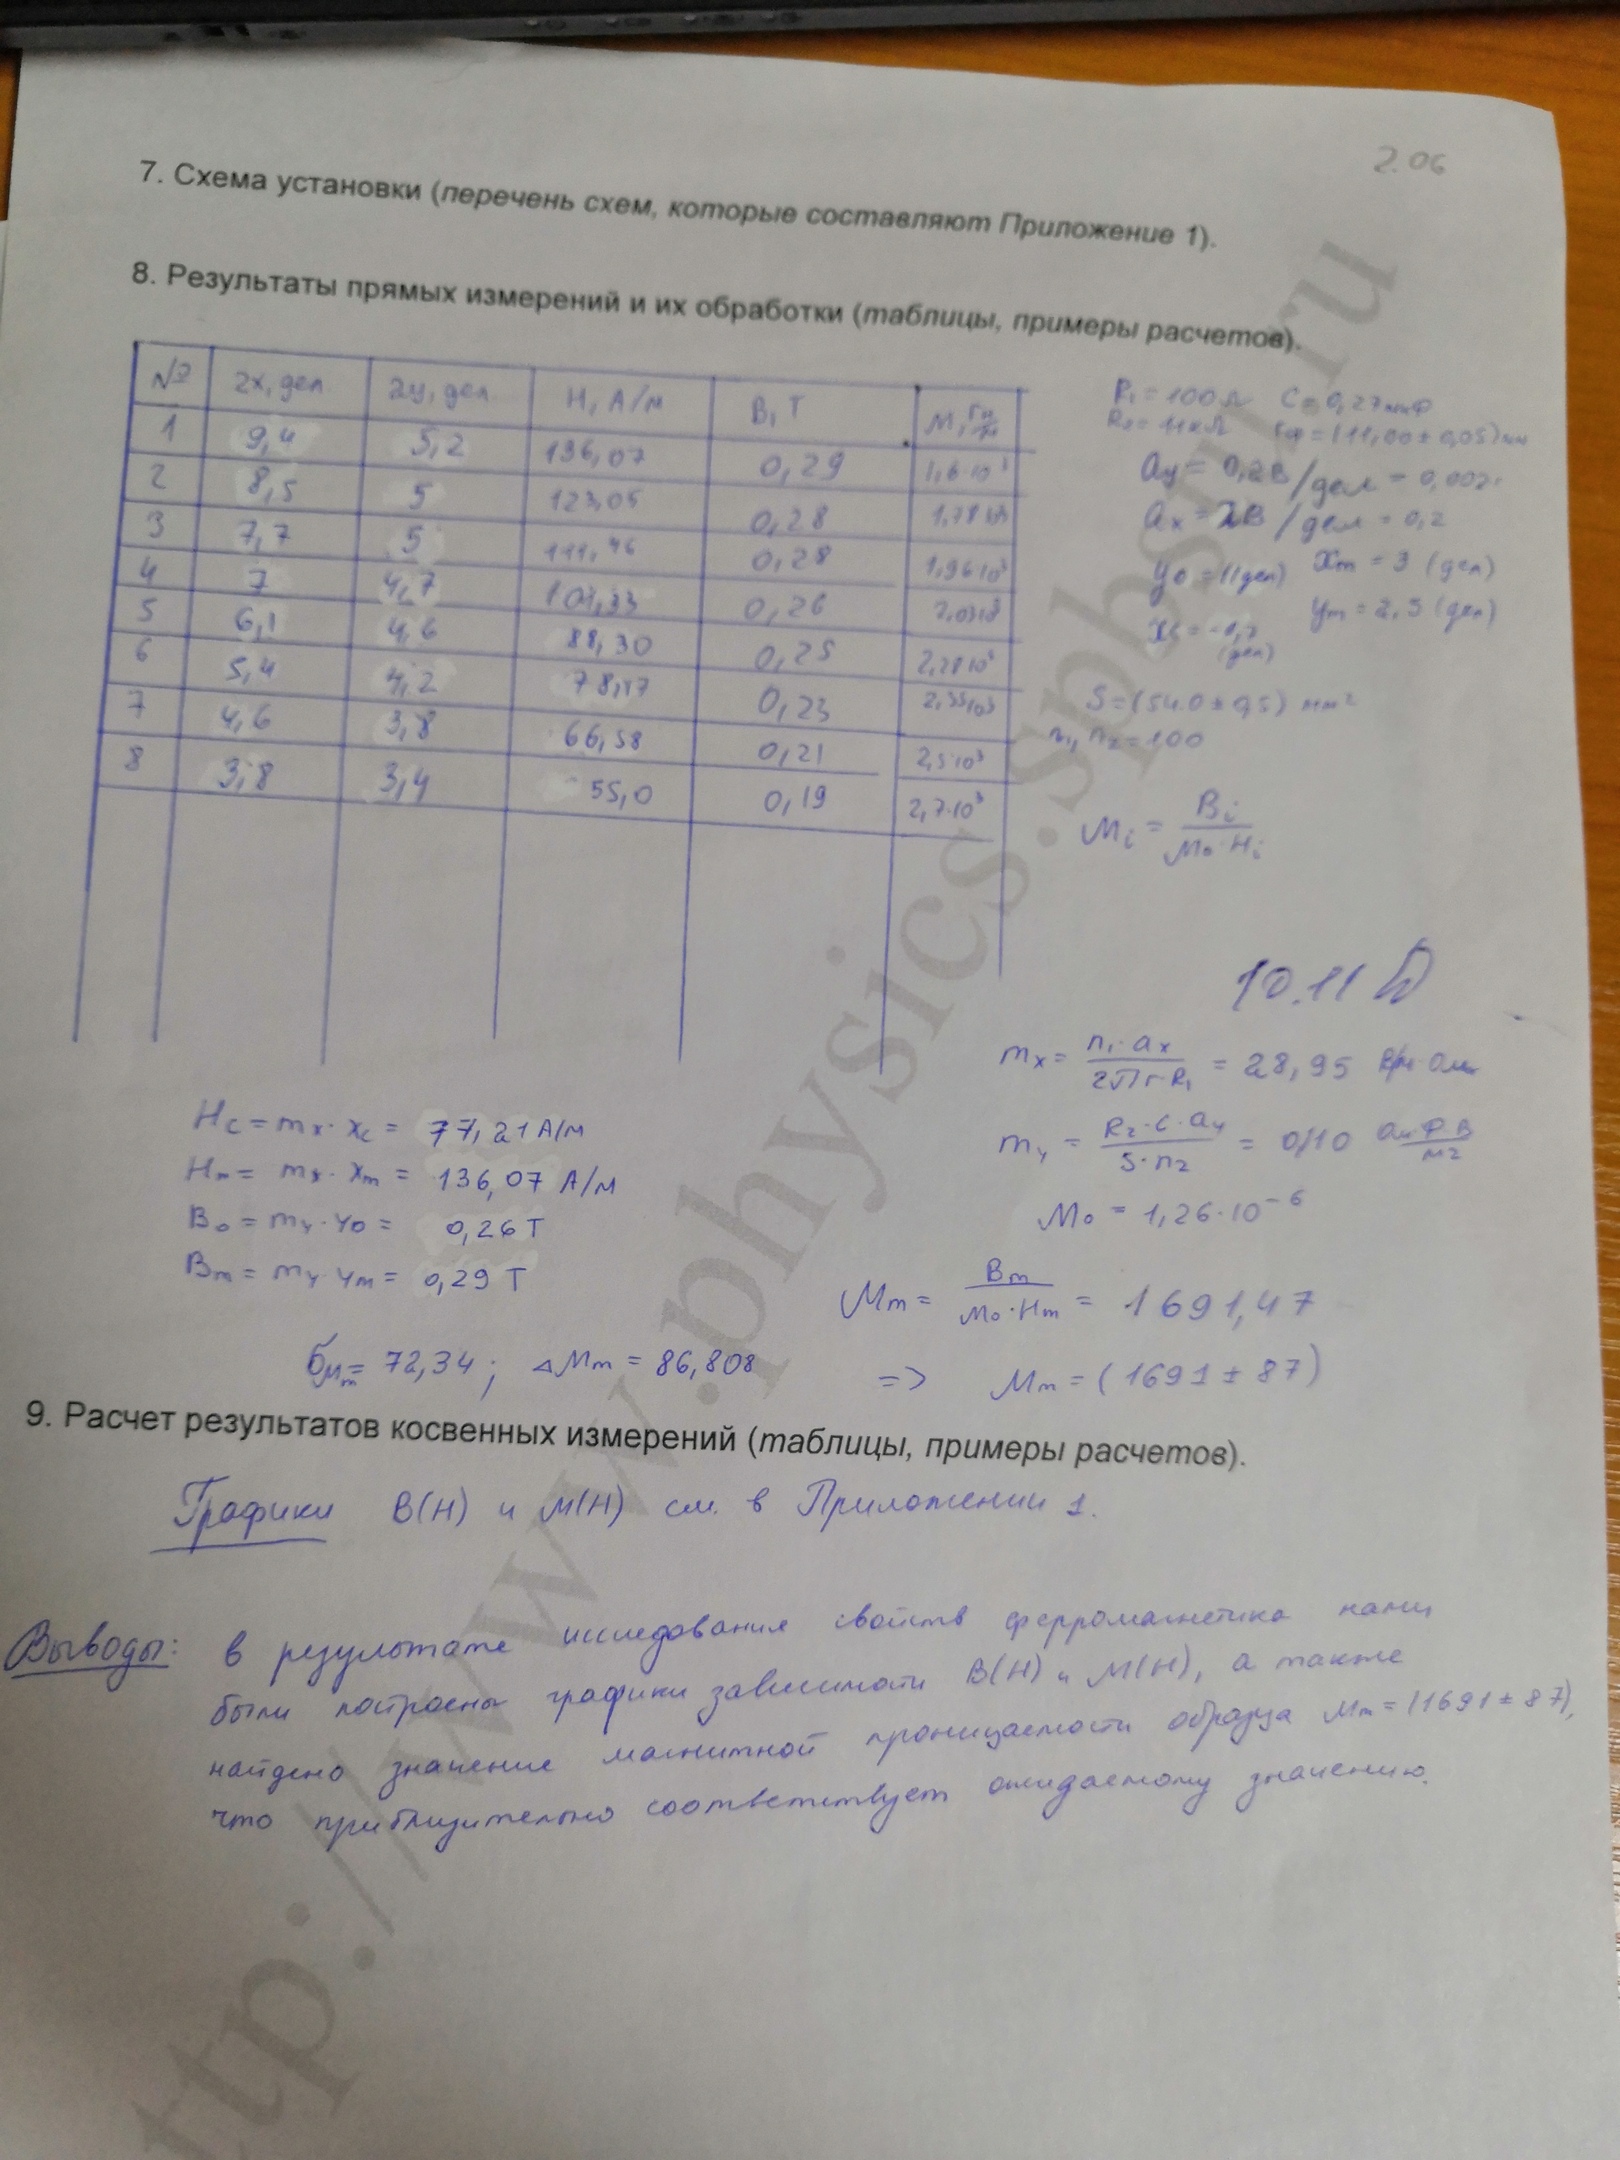 2.06
7. Схема установки (перечень схем, которые составляют Приложение 1).
8. Результаты прямых измерений и их обработки (таблицы, примеры расчетов).
№ 2x, дел 2y, дел. H, А/м B, T М, Гн/м
1 9,4 5,2 136,07 0,29 1,6·10³
2 8,5 5 123,05 0,28
3 7,7 5 111,46 0,28 1,96·10³
4 7 4,7 101,33 0,26
5 6,1 4,6 88,30 0,25 2,28·10³
6 5,4 4,2 78,17 0,23 2,35·10³
7 4,6 3,8 66,58 0,21 2,5·10³
8 3,8 3,4 55,0 0,19 2,7·10³
R₁ = 100 Л C = 0,27 мкФ
R₂ = 11 кЛ = (11,00 ± 0,05) мм
ay = 0,2В/дел = 0,002
ax = 2В/дел = 0,2
y₀ = 1 (дел) xm = 3 (дел)
(дел) ym = 2,5 (дел)
S = (54.0 ± 0,5) мм²
n₁, n₂ = 100
Mi = Bi / M₀·Hi
10.11
mx = n₁·ax / 2πr·R₁ = 28,95
my = R₂·C·ay / S·n₂ = 0,10 Ом·Ф·В / м²
M₀ = 1,26·10⁻⁶
Hc = mx·xc = 77,21 А/м
Hm = mx·xm = 136,07 А/м
B₀ = my·y₀ = 0,26 T
Bm = my·ym = 0,29 T
Mm = Bm / M₀·Hm = 1691,47
бMm = 72,34; ΔMm = 86,808 => Mm = (1691 ± 87)
9. Расчет результатов косвенных измерений (таблицы, примеры расчетов).
Графики B(H) и M(H) см. в Приложении 1.
Выводы: в результате исследования свойств ферромагнетика нами
были построены графики зависимости B(H) и M(H), а также
найдено значение магнитной проницаемости образца Mm = (1691 ± 87),
что приблизительно соответствует ожидаемому значению.
http://www.physics.spbstu.ru